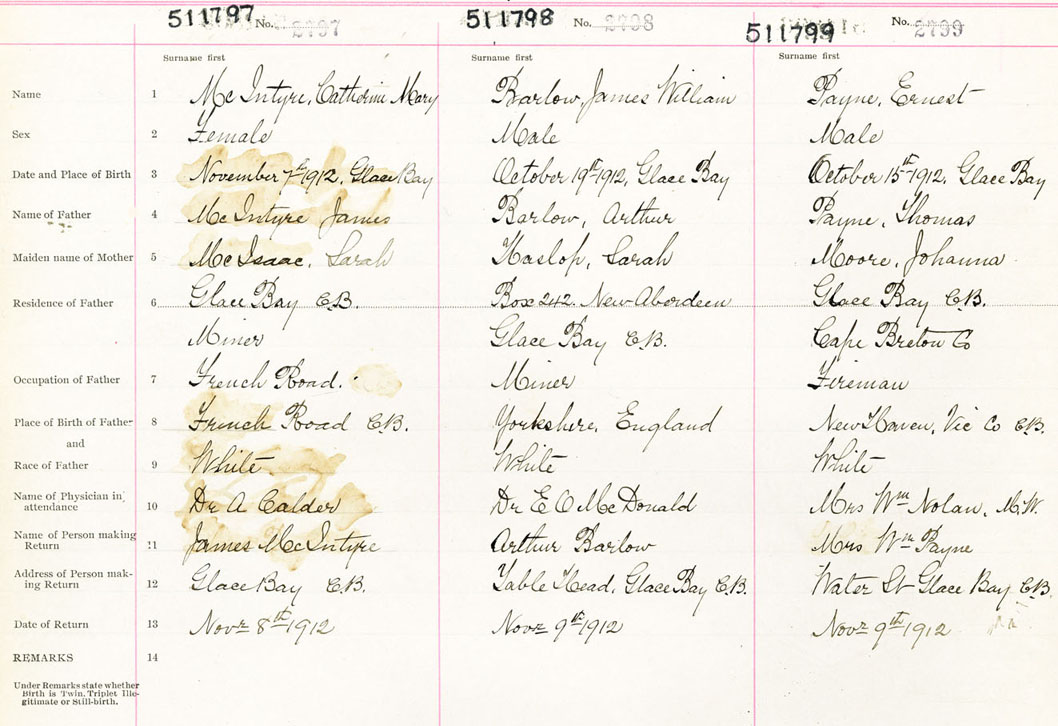 511797 No. 2797 511798 No. 2798 511799 No. 2799
Surname first Surname first Surname first
Name 1 Mc Intyre, Catherine Mary Barlow, James William Payne, Ernest
Sex 2 Female Male Male
Date and Place of Birth 3 November 7th 1912, Glace Bay October 19th 1912, Glace Bay October 15th 1912, Glace Bay
Name of Father 4 Mc Intyre James Barlow, Arthur Payne, Thomas
Maiden name of Mother 5 Mc Isaac, Sarah Haslop, Sarah Moore, Johanna
Residence of Father 6 Glace Bay C.B. Box 242. New Aberdeen Glace Bay C.B.
Miner Glace Bay C.B. Cape Breton Co
Occupation of Father 7 French Road. Miner Fireman
Place of Birth of Father 8 French Road C.B. Yorkshire, England New Haven, Vic Co C.B.
and
Race of Father 9 White White White
Name of Physician in attendance 10 Dr A Calder Dr E O McDonald Mrs Wm Nolan, M.W.
Name of Person making Return 11 James McIntyre Arthur Barlow Mrs Wm Payne
Address of Person making Return 12 Glace Bay C.B. Table Head, Glace Bay C.B. Water St Glace Bay C.B.
Date of Return 13 Novr 8th 1912 Novr 9th 1912 Novr 9th 1912
REMARKS 14
Under Remarks state whether
Birth is Twin, Triplet Ille-
gitimate or Still-birth.